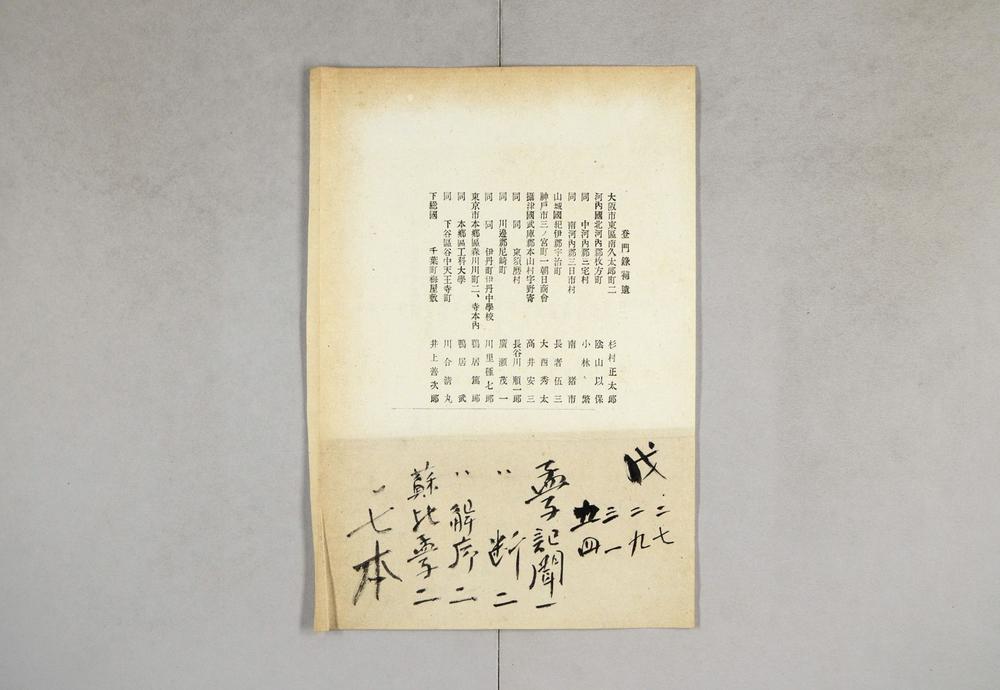 登門錄補遺
大阪市東區南久太郎町二　杉村正太郎
河內國北河內郡枚方町　陰山以保
同　中河內郡三宅村　小林　繁
同　南河內郡三日市村　南　猪市
山城國紀伊郡宇治町　長者伍三
神戶市三ノ宮町一朝日商會　大西秀太
攝津國武庫郡本山村字野寄　高井安三
同　同　東須磨村　長谷川順一郎
同　川邊郡尼崎町　廣瀨茂一
同　同　伊丹町伊丹中學校　川里種七郎
東京市本鄉區森川町二、寺本內　鴨居篤郎
同　本鄉區工科大學　鴨居　武
同　下谷區谷中天王寺町　川合清丸
下總國　千葉町梅屋敷　井上善次郎
戊
二七
二九
三一
五四
孟子記聞一
〃　斷二
〃　解序二
蘇批孟子二
七本